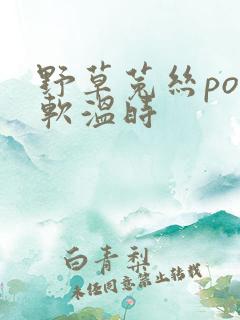 野草菟絲po
軟溫時
白青梨
未任同意禁止转载